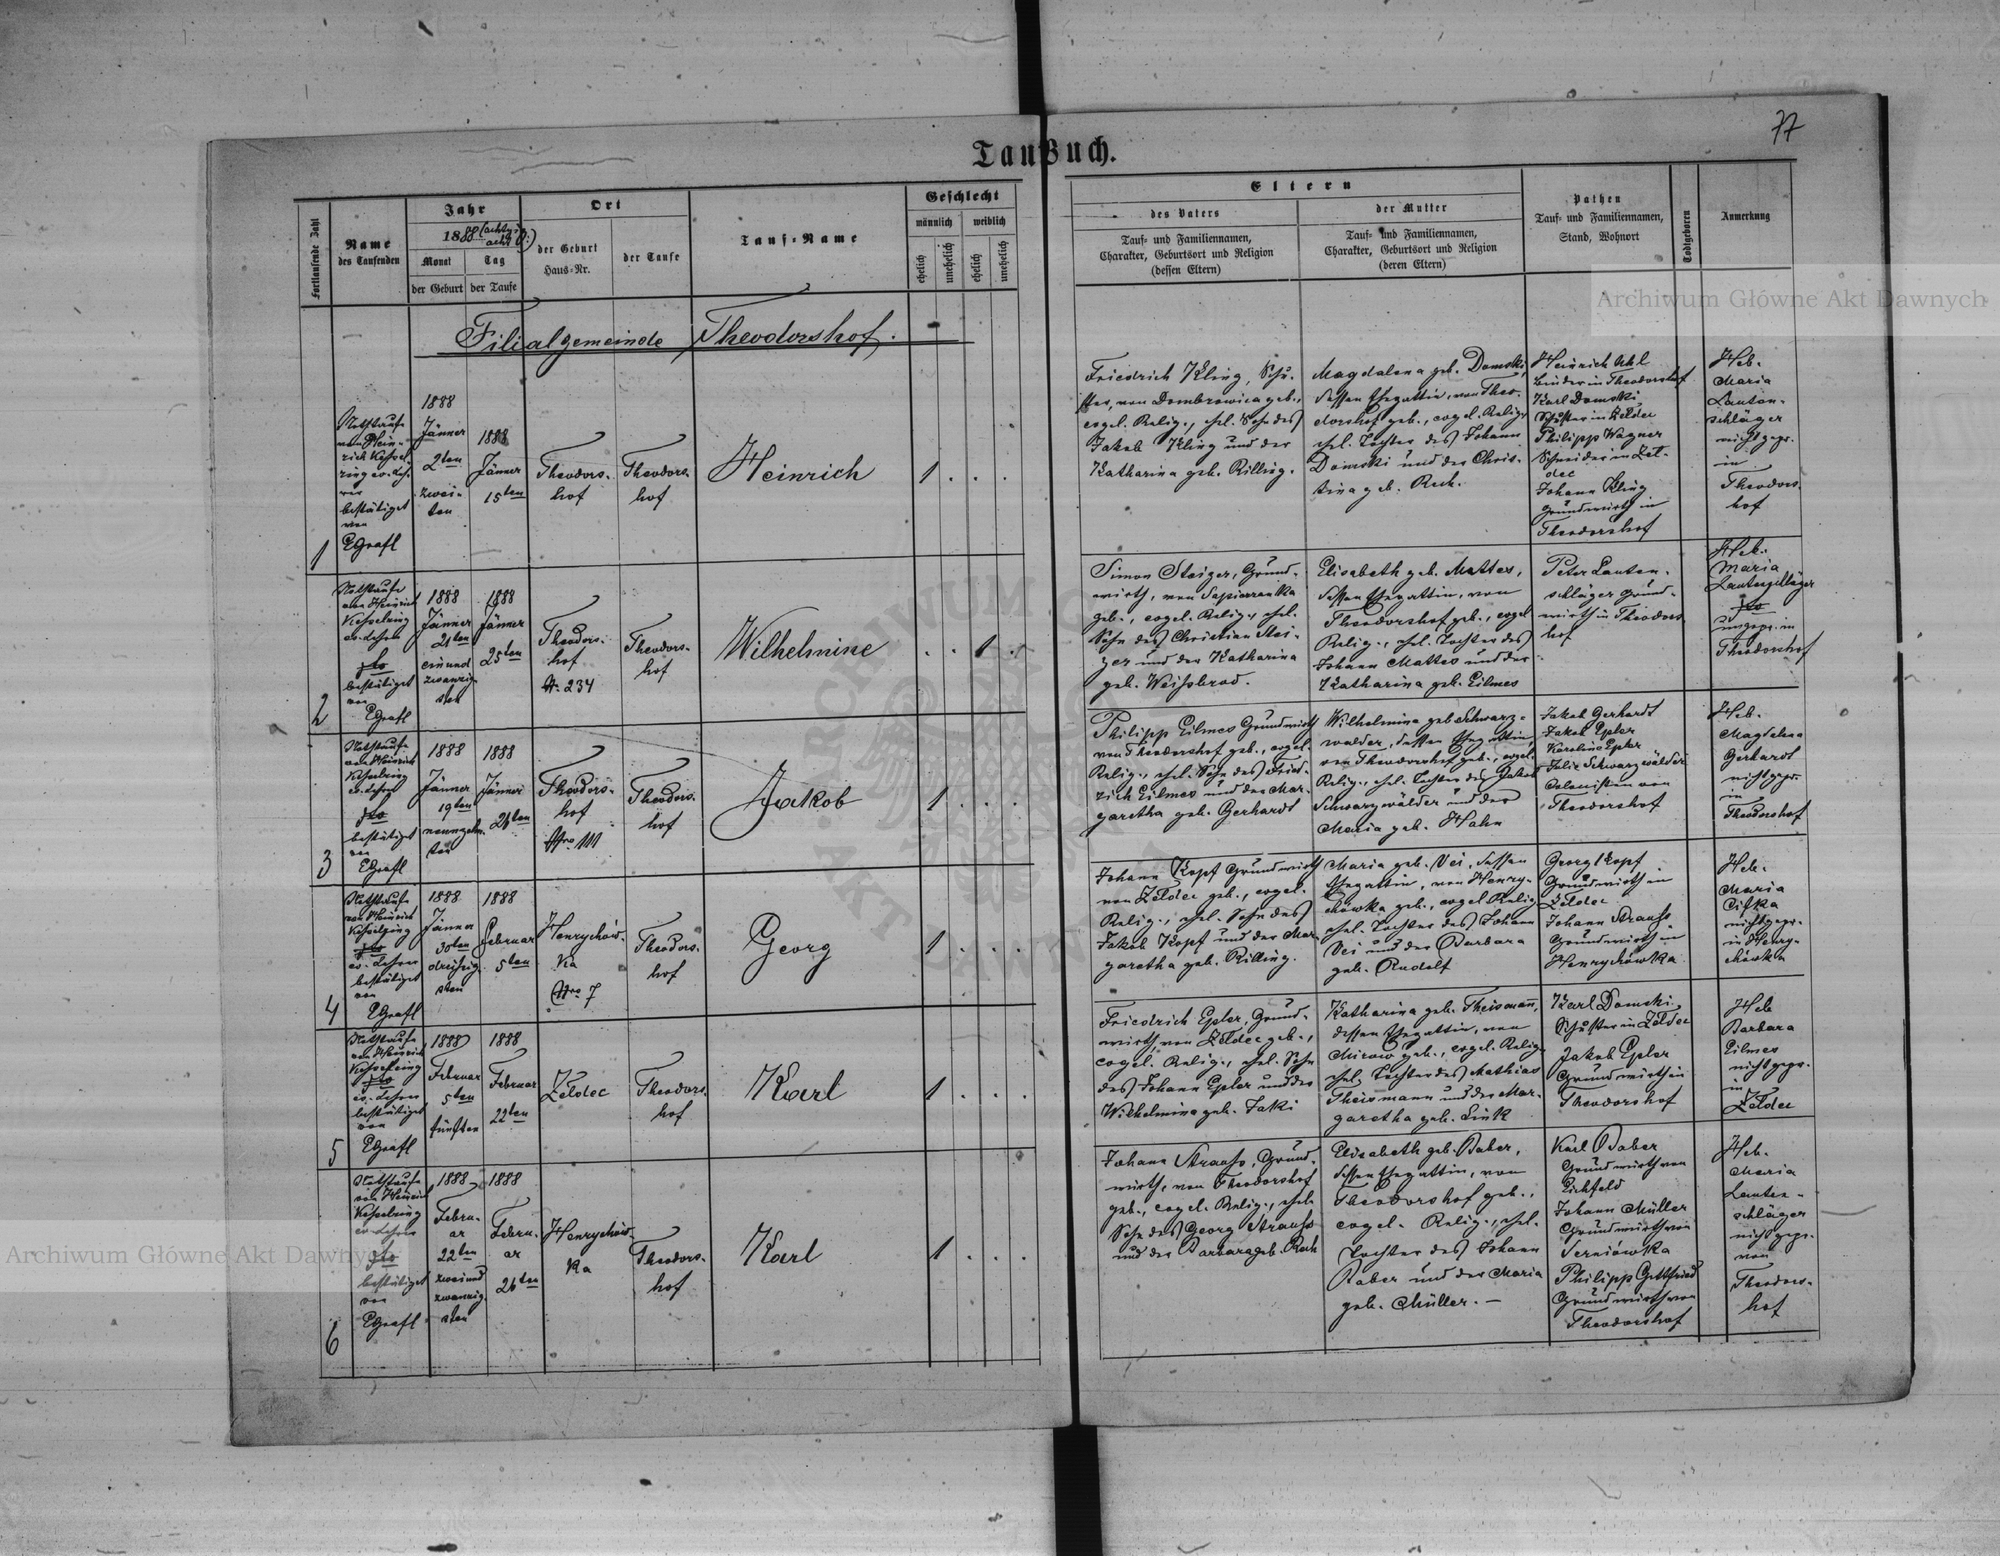 77
Taufbuch.
Fortlaufende Zahl
Name
des Taufenden
Jahr
1888 (achtzig
acht)
Monat
Tag
der Geburt
der Taufe
Ort
der Geburt
Haus=Nr.
der Taufe
Tauf=Name
Geschlecht
männlich
weiblich
ehelich
unehelich
ehelich
unehelich
Eltern
des Vaters
Tauf= und Familiennamen,
Charakter, Geburtsort und Religion
(dessen Eltern)
der Mutter
Tauf= und Familiennamen,
Charakter, Geburtsort und Religion
(deren Eltern)
Pathen
Tauf= und Familiennamen,
Stand, Wohnort
Todtgeboren
Anmerkung
Filialgemeinde Theodorshof.
1
Nothtaufe
von Hein-
rich Kessel-
ring ev. Leh-
rer
bestätiget
von
EGrafl
1888
Jänner
2ten
zwei-
ten
1888
Jänner
15ten
Theodors-
hof
Theodors-
hof
Heinrich
1 . . .
Friedrich Kling, Schu-
ster, von Dombrowica geb.,
evgel. Relig., ehl. Sohn des
Jakob Kling und der
Katharina geb. Rilling.
Magdalena geb. Domski,
dessen Ehegattin, von Theo-
dorshof geb., evgel. Relig.
ehl. Tochter des Johann
Domski und der Chris-
tina geb. Rech.
Heinrich Uhl
Binder in Theodorshof
Karl Domski
Schuster in Zeldec
Philipp Wagner
Schneider in Zel-
dec
Johann Kling
Grundwirth in
Theodorshof
Heb.
Maria
Lauten-
schläger
nicht gepr.
in
Theodors-
hof
2
Nothtaufe
von Heinrich
Kesselring
ev. Lehrer
bestätiget
von
EGrafl
1888
Jänner
21ten
einund
zwanzig-
sten
1888
Jänner
25ten
Theodors-
hof
N. 234
Theodors-
hof
Wilhelmine
. . 1 .
Simon Steiger, Grund-
wirth, von Sapieranka
geb., evgel. Relig., ehl.
Sohn des Christian Stei-
ger und der Katharina
geb. Weissbrod.
Elisabeth geb. Mattes,
dessen Ehegattin, von
Theodorshof geb., evgel
Relig., ehl. Tochter des
Johann Mattes und der
Katharina geb. Eilmes
Peter Lauten-
schläger Grund-
wirth in Theodors
hof
Heb.
Maria
Lautenschläger
ungepr. in
Theodorshof
3
Nothtaufe
von Heinrich
Kesselring
ev. Lehrer
bestätiget
von
EGrafl
1888
Jänner
19ten
neunzehn-
ten
1888
Jänner
26ten
Theodors-
hof
Nro 111
Theodors-
hof
Jakob
1 . . .
Philipp Eilmes Grundwirth
von Theodorshof geb., evgel.
Relig., ehl. Sohn des Fried-
rich Eilmes und der Mar-
garetha geb. Gerhardt
Wilhelmina geb Schwarz-
wälder, dessen Ehegattin,
von Theodorshof geb., evgel.
Relig., ehl. Tochter des Jakob
Schwarzwälder und der
Maria geb. Hahn
Jakob Gerhardt
Jakob Epler
Karoline Epler
Julie Schwarzwälder
Colonisten von
Theodorshof
Heb.
Magdalena
Gerhardt
nicht gepr.
in
Theodorshof
4
Nothtaufe
von Heinrich
Kesselring
ev. Lehrer
bestätiget
von
EGrafl
1888
Jänner
30ten
dreissig-
sten
1888
Februar
5ten
Henrychów-
ka
Nro 7
Theodors-
hof
Georg
1 . . .
Johann Kopf Grundwirth
von Zeldec geb., evgel.
Relig., ehl. Sohn des
Jakob Kopf und der Mar-
garetha geb. Rilling.
Maria geb. Vei, dessen
Ehegattin, von Henry-
chówka geb., evgel Relig
ehl. Tochter des Johann
Vei und der Barbara
geb. Rudolf
Georg Kopf
Grundwirth in
Zeldec
Johann Strauss
Grundwirth in
Henrychówka
Heb.
Maria
nicht gepr.
in Henry-
chówka
5
Nothtaufe
von Heinrich
Kesselring
ev. Lehrer
bestätiget
von
EGrafl
1888
Februar
5ten
fünften
1888
Februar
22ten
Zeldec
Theodors-
hof
Karl
1 . . .
Friedrich Epler, Grund-
wirth, von Zeldec geb.,
evgel. Relig., ehl. Sohn
des Johann Epler und der
Wilhelmina geb. Jaki
Katharina geb. Theismann,
dessen Ehegattin, von
Mirow geb., evgel. Relig.
ehl. Tochter des Mathias
Theismann und der Mar-
garetha geb. Link
Karl Domski
Schuster in Zeldec
Jakob Epler
Grundwirth in
Theodorshof
Heb
Barbara
Eilmes
nicht gepr.
in
Zeldec
6
Nothtaufe
von Heinrich
Kesselring
ev. Lehrer
bestätiget
von
EGrafl
1888
Febru-
ar
22ten
zweiund
zwanzig-
sten
1888
Febru-
ar
26ten
Henrychów-
ka
Theodors-
hof
Karl
1 . . .
Johann Strauss, Grund-
wirth, von Theodorshof
geb., evgel. Relig., ehel.
Sohn des Georg Strauss
und der Barbara geb. Rech
Elisabeth geb. Baber,
dessen Ehegattin, von
Theodorshof geb.,
evgel. Relig., ehl.
Tochter des Johann
Baber und der Maria
geb. Müller. —
Karl Baber
Grundwirth von
Eichfeld
Johann Müller
Grundwirth von
Philipp Gottfried
Grundwirth von
Theodorshof
Heb.
Maria
Lauten-
schläger
nicht gepr.
von
Theodors-
hof
Archiwum Główne Akt Dawnych
Archiwum Główne Akt Dawnych